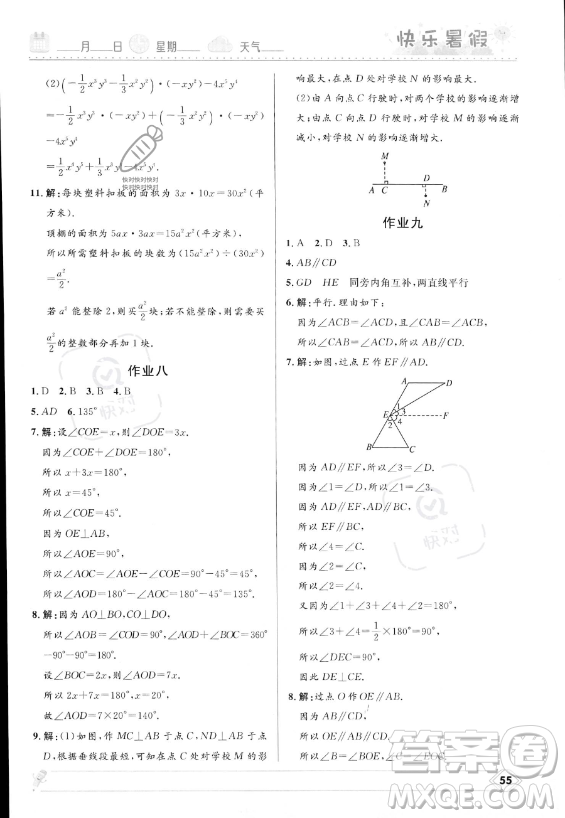 月 日 星期 天气
快乐暑假
(2)(-1/2x³y³-1/3x³y²)·(-xy²)-4x⁴y⁵
=-1/2x³y³·(-xy²)+(-1/3x³y²)·(-xy²)
-4x⁴y⁵
=1/2x⁴y⁵+1/3x⁴y⁴-4x⁴y⁵
11.解:每块塑料扣板的面积为3x·10x=30x²(平
方米).
顶棚的面积为5ax·3ax=15a²x²(平方米).
所以所需塑料扣板的块数为(15a²x²)÷(30x²)
=a²/2.
若a²能整除2,则需买a²/2块;若不能整除,则需买
a²/2的整数部分再加1块.
作业八
1.D 2.B 3.B 4.B
5.AD 6.135°
7.解:设∠COE=x,则∠DOE=3x.
因为∠COE+∠DOE=180°,
所以x+3x=180°.
所以∠COE=45°.
因为OE⊥AB,
所以∠AOE=90°.
所以∠AOC=∠AOE-∠COE=90°-45°=45°.
8.解:因为AO⊥BO,CO⊥DO,
所以∠AOB=∠COD=90°,∠AOD+∠BOC=
360°-90°-90°=180°.
设∠BOC=2x,则∠AOD=7x.
所以2x+7x=180°,所以x=20°.
所以∠AOD=7×20°=140°.
9.解:(1)如图,作MC⊥AB于点C,ND⊥AB于点D,
根据垂线段最短,可知在点C处对学校M的影
响最大,在点D处对学校N的影响最大.
(2)由A向点C行驶时,对两个学校的影响逐渐增
大;由点C向点D行驶时,对学校M的影响逐渐
减小,对学校N的影响逐渐增大.
M
A C B
N
作业九
1.A 2.D 3.B
4.AB∥CD
5.GD HE 同旁内角互补,两直线平行
6.解:平行.理由如下:
因为∠ACB=∠ACD',∠ACB=∠CAB,
所以∠CAB=∠ACD'.
所以AB∥CD'.
7.解:如图,过点E作EF∥AD.
A D
E F
1 3 2 4
B C
因为AD∥EF,所以∠3=∠D.
因为∠1=∠D,所以∠1=∠3.
因为AD∥BC,所以EF∥BC.
所以∠4=∠C.
因为∠2=∠C,所以∠2=∠4.
又因为∠1+∠2+∠3+∠4=180°,
所以∠3+∠4=1/2×180°=90°.
因为∠DEC=∠3+∠4,所以∠DEC=90°.
所以DE⊥CE.
8.解:过点O作OE∥AB.
所以∠A=∠AOE.
因为AB∥CD,所以OE∥CD.
55
快对快对快对
快对快对快对
快对